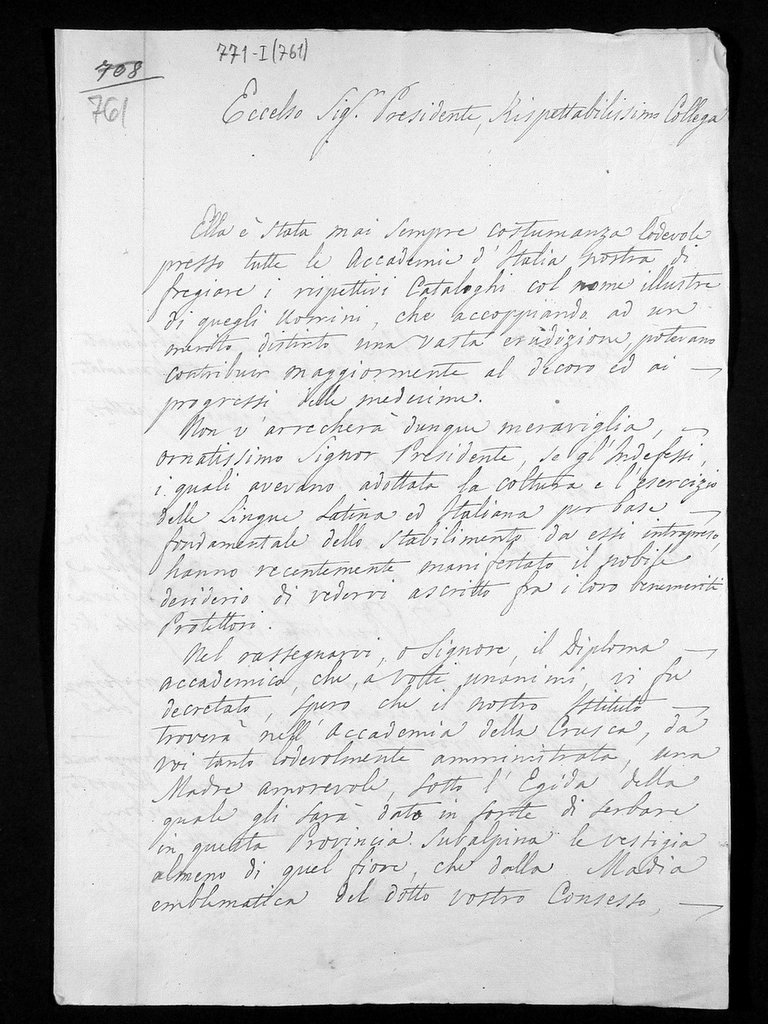 771-I (761)
708
761
Eccelso Sig.r Presidente, Rispettabilissimo Collega
Ella è stata mai sempre costumanza lodevole
presso tutte le Accademie d'Italia nostra di
fregiare i rispettivi Cataloghi col nome illustre
di quegli Uomini, che accoppiando ad un
merito distinto una vasta erudizione, potevano
contribuir maggiormente al decoro ed ai
progressi delle medesime.
Non v'arrecherà dunque meraviglia,
ornatissimo Signor Presidente, se gl'Indefessi,
i quali avevano adottata la coltura e l'esercizio
delle Lingue Latina ed Italiana per base
fondamentale dello Stabilimento da essi intrapreso,
hanno recentemente manifestato il nobile
desiderio di vedervi ascritto fra i loro benemeriti
Protettori.
Nel rassegnarvi, o Signore, il Diploma
accademico, che, a voti unanimi, vi fu
decretato, spero che il nostro Istituto
troverà nell'Accademia della Crusca, da
voi tanto lodevolmente amministrata, una
Madre amorevole, sotto l'Egida della
quale gli sarà dato in sorte di serbare
in questa Provincia Subalpina le vestigia
almeno di quel fiore, che dalla Madia
emblematica del dotto vostro Consesso,